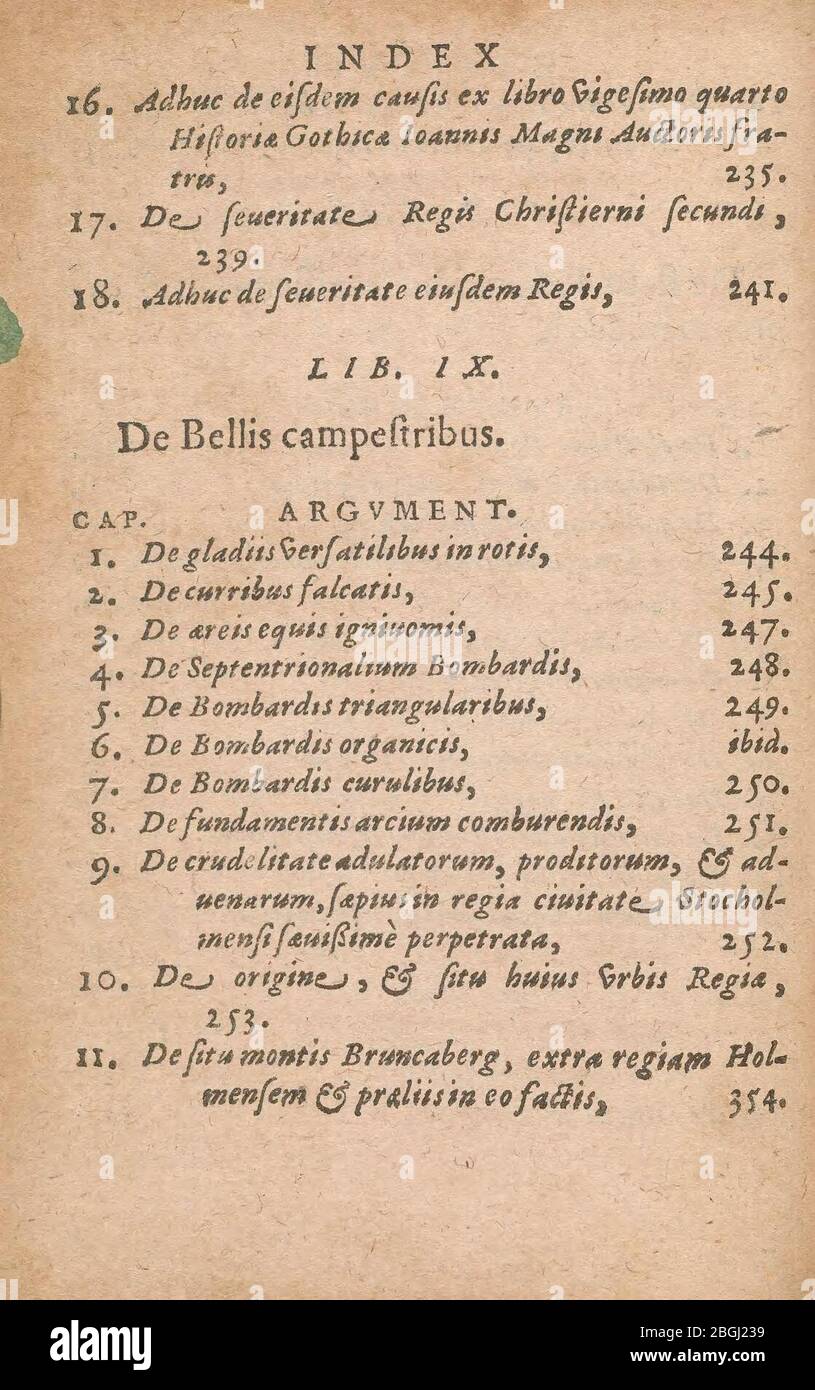 INDEX
16. Adhuc de eiſdem cauſis ex libro vigeſimo quarto
Hiſtoriæ Gothicæ Ioannis Magni Auctoris fra-
tris, 235.
17. De ſeueritate Regis Chriſtierni ſecundi,
239.
18. Adhuc de ſeueritate eiuſdem Regis, 241.
LIB. IX.
De Bellis campeſtribus.
CAP. ARGVMENT.
1. De gladiis verſatilibus in rotis, 244.
2. De curribus falcatis, 245.
3. De æreis equis igniuomis, 247.
4. De Septentrionalium Bombardis, 248.
5. De Bombardis triangularibus, 249.
6. De Bombardis organicis, ibid.
7. De Bombardis curulibus, 250.
8. De fundamentis arcium comburendis, 251.
9. De crudelitate adulatorum, proditorum, & ad-
uenarum, ſæpius in regia ciuitate Stochol-
menſi ſæuißimè perpetrata, 252.
10. De origine, & ſitu huius vrbis Regiæ,
253.
11. De ſitu montis Bruncaberg, extra regiam Hol-
menſem & præliis in eo factis, 354.
alamy
Image ID: 2BGJ239
www.alamy.com